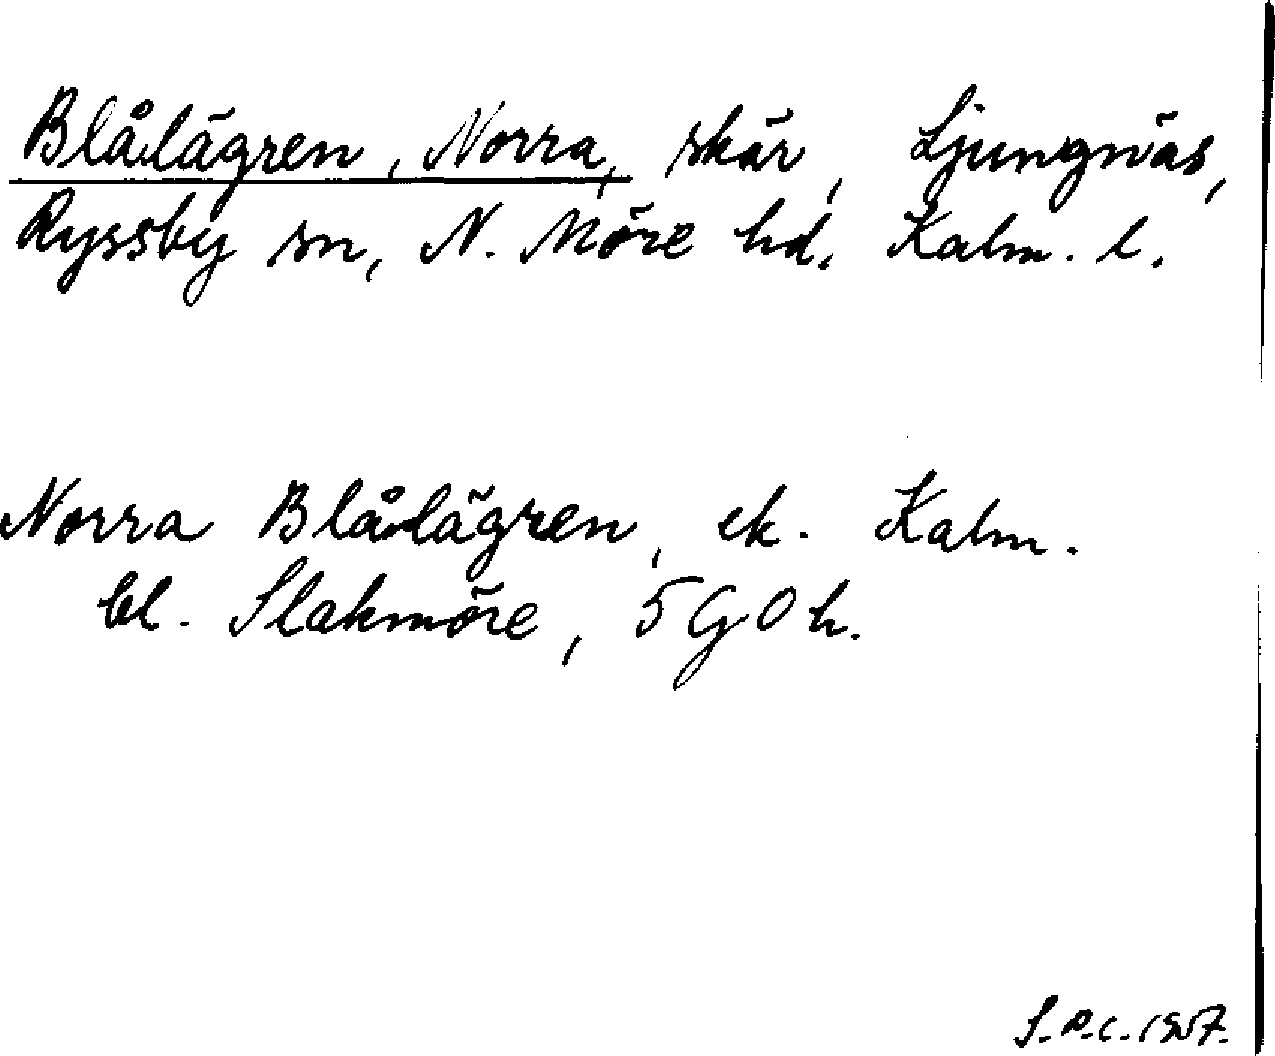 Blålägren, Norra, skär, Ljungnäs,
Ryssby sn, N. Möre hd. Kalm. l.
Norra Blålägren, ek. Kalm.
bl. Slakmöre, 5 G 0 h.
S.A.C. 1957.